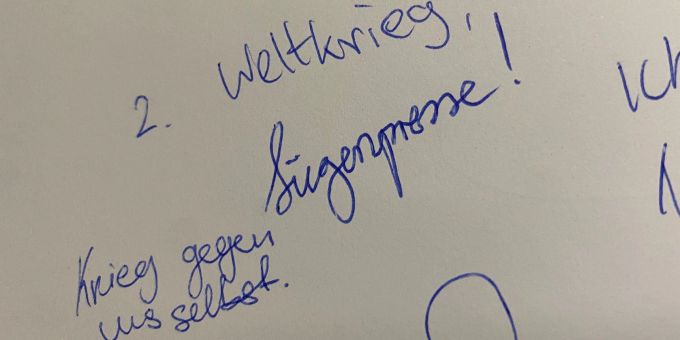 2. Weltkrieg,
Lügenpresse!
Krieg gegen
uns selbst.